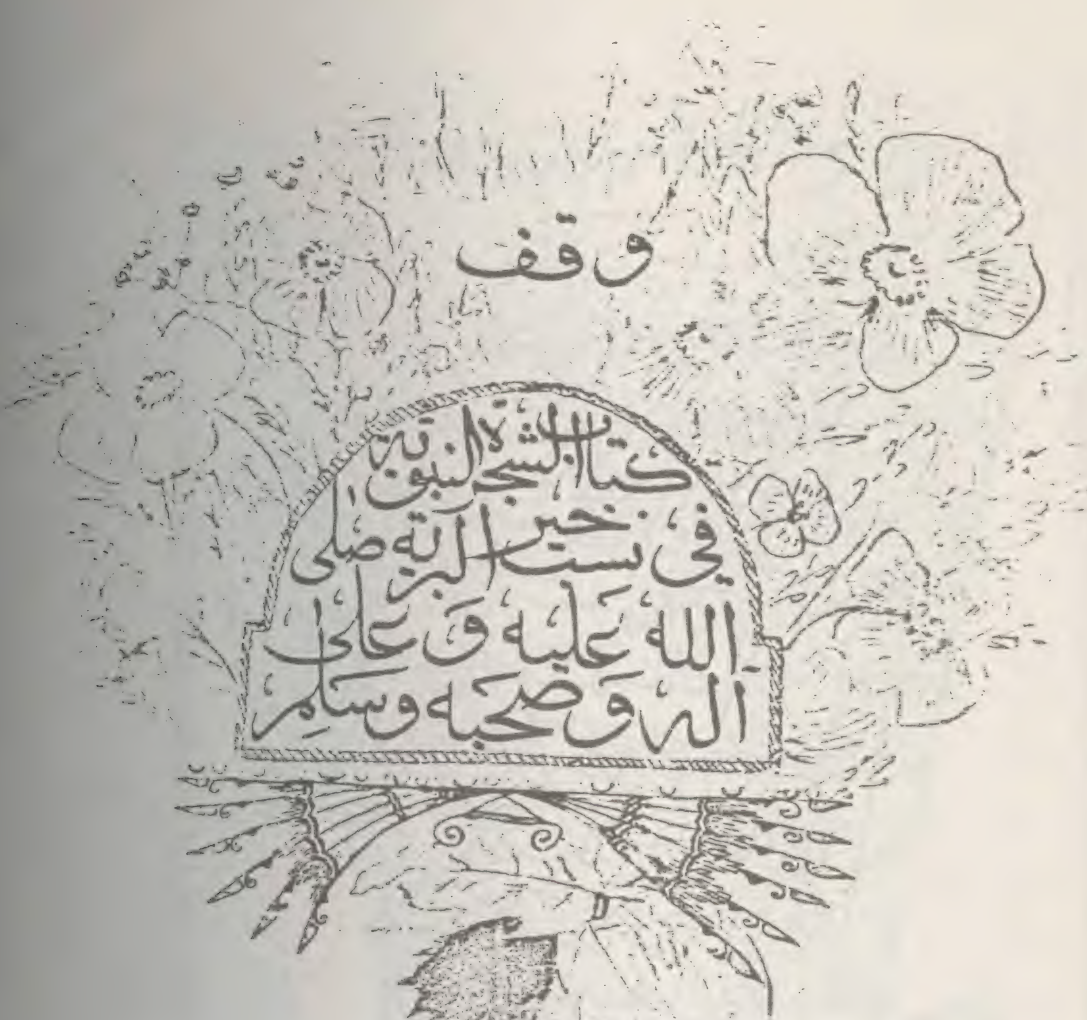 وقف
كتاب الشجرة النبوية
في نسب خير البرية صلى
الله عليه وعلى
آله وصحبه وسلم